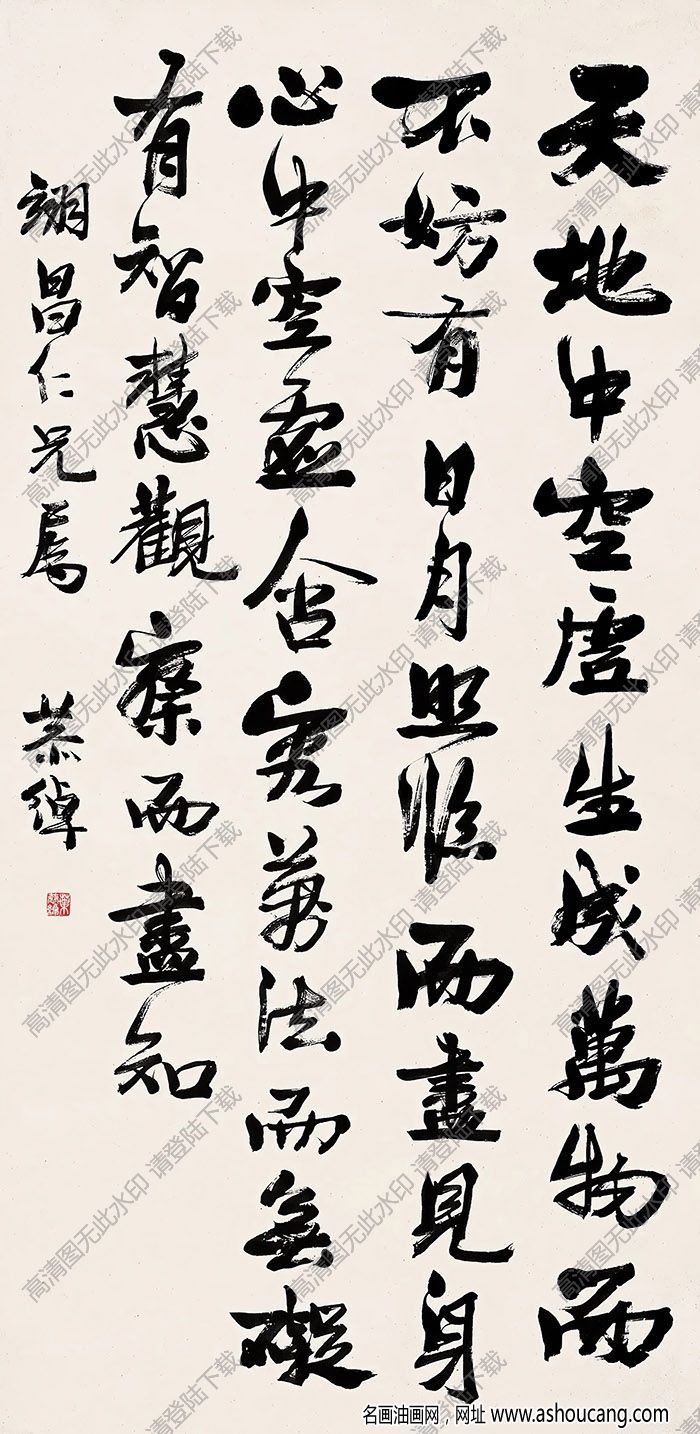 天地中空虛生成萬物而
不妨有日月照臨而盡見身
心中空虛含容萬法而無礙
有智慧觀察而盡知
翊昌仁兄屬
恭綽
高清图无此水印 请登陆下载
名画油画网，网址 www.ashoucang.com